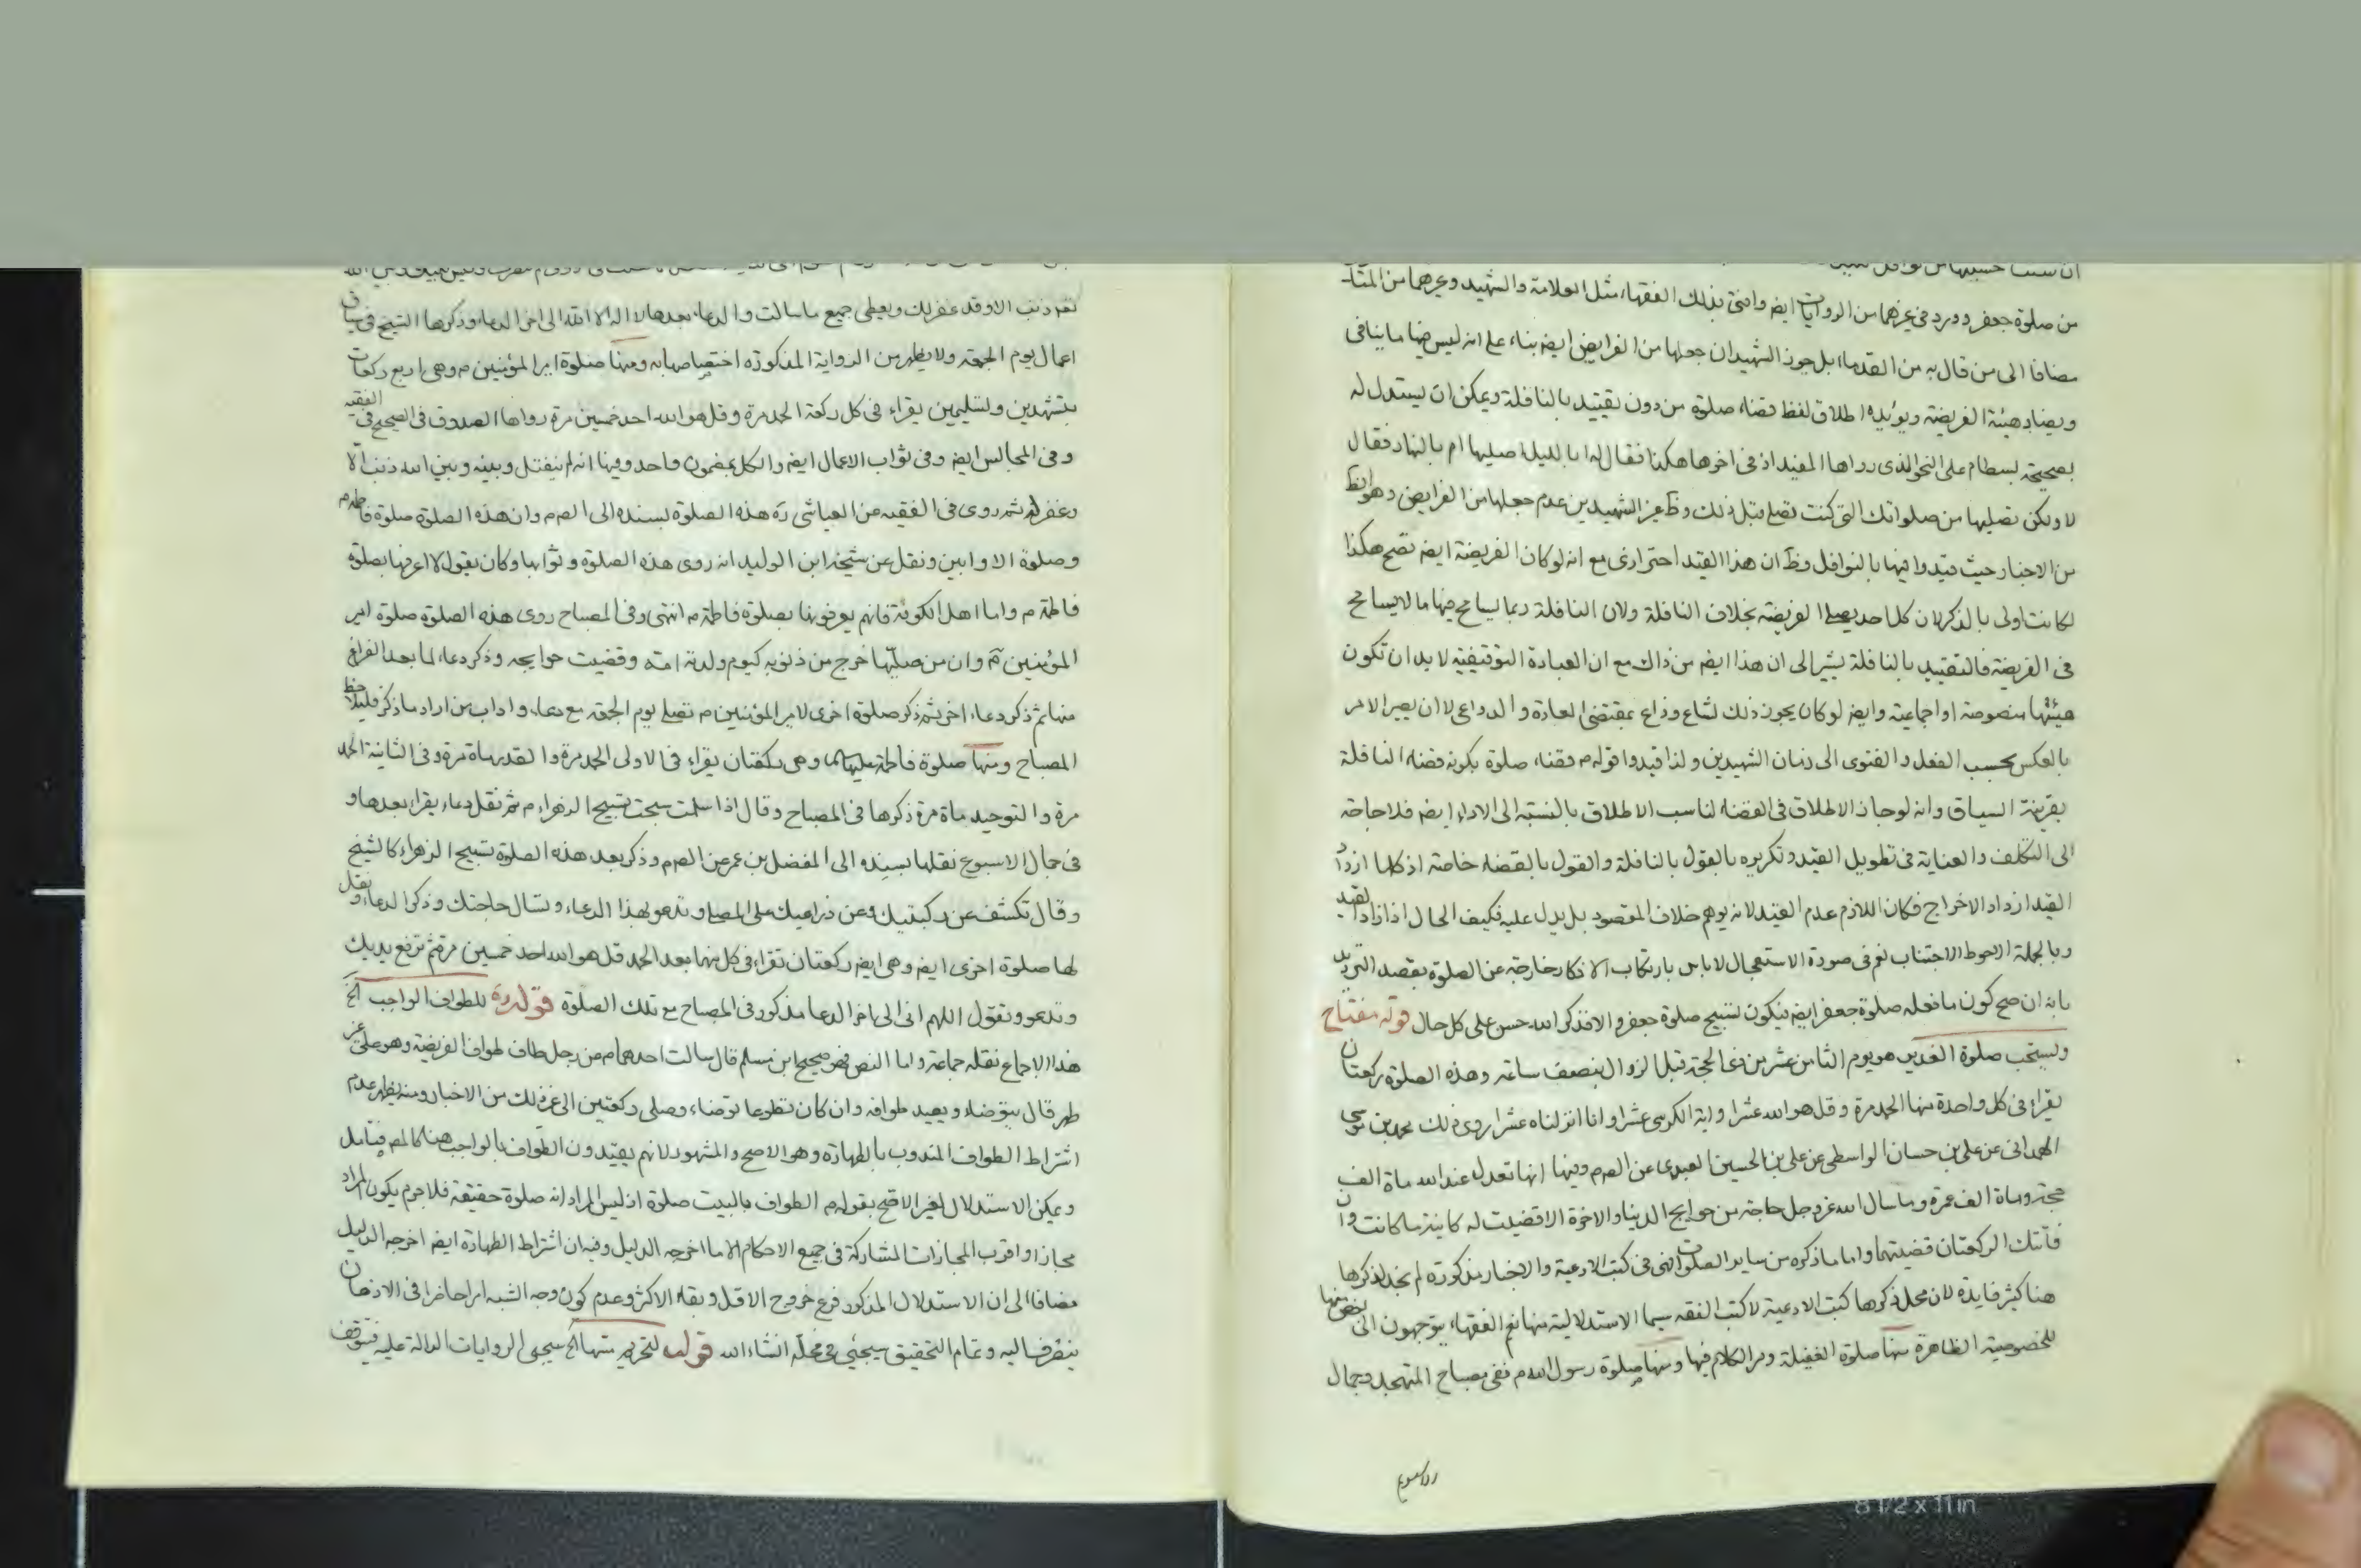 من صلوة جعفر وورد في غيرهما من الروايات ايض وافتى بذلك الفقهاء مثل العلامة والشهيد وغيرهما من المتا
مضافا الى من قال به من القدماء بل جوز الشهيدان جعلها من الفرايض ايض بناء على انه ليس فيها ما ينافى
ويضاد هيئة الفريضة ويؤيده اطلاق لفظ قضاء صلوة من دون تقييد بالنافلة ويمكن ان يستدل له
بصحيحة بسطام على النحو الذى رواها المفيد اذ فى اخرها هكذا فقال له ابالليل اصليها ام بالنهار فقال
لا ولكن تصليها من صلواتك التى كنت تصلى قبل ذلك وظ غير الشهيدين عدم جعلها من الفرايض وهو الظ
من الاخبار حيث قيدوا فيها بالنوافل وظ ان هذا القيد احترازى مع انه لو كان الفريضة ايض تصح هكذا
لكانت اولى بالذكر لان كل احد يصلى الفريضة بخلاف النافلة ولان النافلة ربما يسامح فيها ما لا يسامح
فى الفريضة فالتقييد بالنافلة يشير الى ان هذا ايض من ذاك مع ان العبادة التوقيفية لا بد ان تكون
هيئتها منصوصة او اجماعية وايض لو كان يجوز ذلك لشاع وذاع بمقتضى العادة والدواعى لا ان يصير الامر
بالعكس بحسب الفعل والفتوى الى زمان الشهيدين ولذا قيدوا قوله م قضاء صلوة بكونه قضاء النافلة
بقرينة السياق وانه لو جاز الاطلاق فى القضاء لناسب الاطلاق بالنسبة الى الاداء ايض فلا حاجة
الى التكلف والعناية فى تطويل القيد وتكريره بالقول بالنافلة والقول بالقضاء خاصة اذ كلما ازداد
القيد ازداد الاخراج فكان اللازم عدم القيد لانه يوهم خلاف المقصود بل يدل عليه فكيف الحال اذا زاد القيد
وبالجملة الاحوط الاجتناب نعم فى صورة الاستعجال لا باس بارتكاب الاذكار خارجة عن الصلوة بقصد الترديد
بانه ان صح كون ما فعله صلوة جعفر ايض فيكون تسبيح صلوة جعفر والا فذكر الله حسن على كل حال قوله مفتاح
ويستحب صلوة الغدير هو يوم الثامن عشر من ذى الحجة قبل الزوال بنصف ساعة وهذه الصلوة ركعتان
يقراء فى كل واحدة منها الحمد مرة وقل هو الله عشرا واية الكرسى عشرا وانا انزلناه عشرا روى ذلك محمد بن موسى
الهمدانى عن على بن حسان الواسطى عن على بن الحسين العبدى عن الص م وفيها انها تعدل عند الله ماة الف
حجة وماة الف عمرة وما سال الله عز وجل حاجة من حوايج الدنيا والاخرة الا قضيت له كاينة ما كانت وان
فاتتك الركعتان قضيتهما واما ما ذكره من ساير الصلوات فهى فى كتب الادعية والاخبار مذكورة لم نجد لذكرها
هنا كثير فايدة لان محل ذكرها كتب الادعية لا كتب الفقه سيما الاستدلالية منها نعم الفقهاء يتوجهون الى بعض منها
للخصوصية الظاهرة منها صلوة الغفيلة ومر الكلام فيها ومنها صلوة رسول الله م ففى مصباح المتهجد وجمال
له ذنب الا وقد غفر لك ويعطى جميع ما سالت والدعاء بعدها لا اله الا الله الى اخر الدعاء وذكرها الشيخ فى سياق
اعمال يوم الجمعة ولا يظهر من الرواية المذكورة اختصاصها به ومنها صلوة امير المؤمنين م وهى اربع ركعات
بتشهدين وتسليمين يقراء فى كل ركعة الحمد مرة وقل هو الله احد خمسين مرة رواها الصدوق فى الصحيح فى الفقيه
وفى المجالس ايض وفى ثواب الاعمال ايض والكل بمضمون واحد وفيها انه لم ينفتل وبينه وبين الله ذنب الا
وغفر له ثم روى فى الفقيه عن العياشى ره هذه الصلوة بسنده الى الص م وان هذه الصلوة صلوة فاطمة م
وصلوة الاوابين ونقل عن شيخه ابن الوليد انه روى هذه الصلوة وثوابها وكان يقول لا اعرفها بصلوة
فاطمة م واما اهل الكوفة فانهم يعرفونها بصلوة فاطمة م انتهى وفى المصباح روى هذه الصلوة صلوة امير
المؤمنين م وان من صليها خرج من ذنوبه كيوم ولدته امه وقضيت حوايجه وذكر دعاء لما بعد الفراغ
منها ثم ذكر دعاء اخر ثم ذكر صلوة اخرى لامير المؤمنين م تصلى يوم الجمعة مع دعاء واداب من اراد ما ذكر فليلاحظ
المصباح ومنها صلوة فاطمة عليها وهى ركعتان يقراء فى الاولى الحمد مرة والقدر ماة مرة وفى الثانية الحمد
مرة والتوحيد ماة مرة ذكرها فى المصباح وقال اذا سلمت سبحت تسبيح الزهراء م ثم نقل دعاء يقراء بعدها و
فى جمال الاسبوع نقلها بسنده الى المفضل بن عمر عن الص م وذكر بعد هذه الصلوة تسبيح الزهراء كالشيخ
وقال تكشف عن ركبتيك وعن ذراعيك على المصلى وتدعو بهذا الدعاء وتسال حاجتك وذكر الدعاء ونقل
لها صلوة اخرى ايض وهى ايض ركعتان تقراء فى كل منهما بعد الحمد قل هو الله احد خمسين مرة ثم ترفع يديك
وتدعو وتقول اللهم انى الى اخر الدعا مذكور فى المصباح مع تلك الصلوة قوله ره للطواف الواجب الخ
هذا الاجماع نقله جماعة واما النص فهو صحيح ابن مسلم قال سالت احدهما م من رجل طاف طواف الفريضة وهو على غير
طهر قال يتوضاء ويعيد طوافه وان كان تطوعا توضاء وصلى ركعتين الى غير ذلك من الاخبار ومنه يظهر عدم
اشتراط الطواف المندوب بالطهارة وهو الاصح والمشهور لانهم يقيدون الطواف بالواجب هنا كالمص فتامل
ويمكن الاستدلال لغير الاصح بقوله م الطواف بالبيت صلوة اذ ليس المراد انه صلوة حقيقة فلا جرم يكون المراد
مجازا واقرب المجازات المشاركة فى جميع الاحكام الا ما اخرجه الدليل وفيه ان اشتراط الطهارة ايض اخرجه الدليل
مضافا الى ان الاستدلال المذكور فرع خروج الاقل وبقاء الاكثر وعدم كون وجه الشبه امرا حاضرا فى الاذهان
ينصرف اليه وتمام التحقيق سيجئ فى محله انشاء الله قوله لتحريم مسها الخ سيجى الروايات الدالة عليه فيتوقف
8 1/2 x 11 in